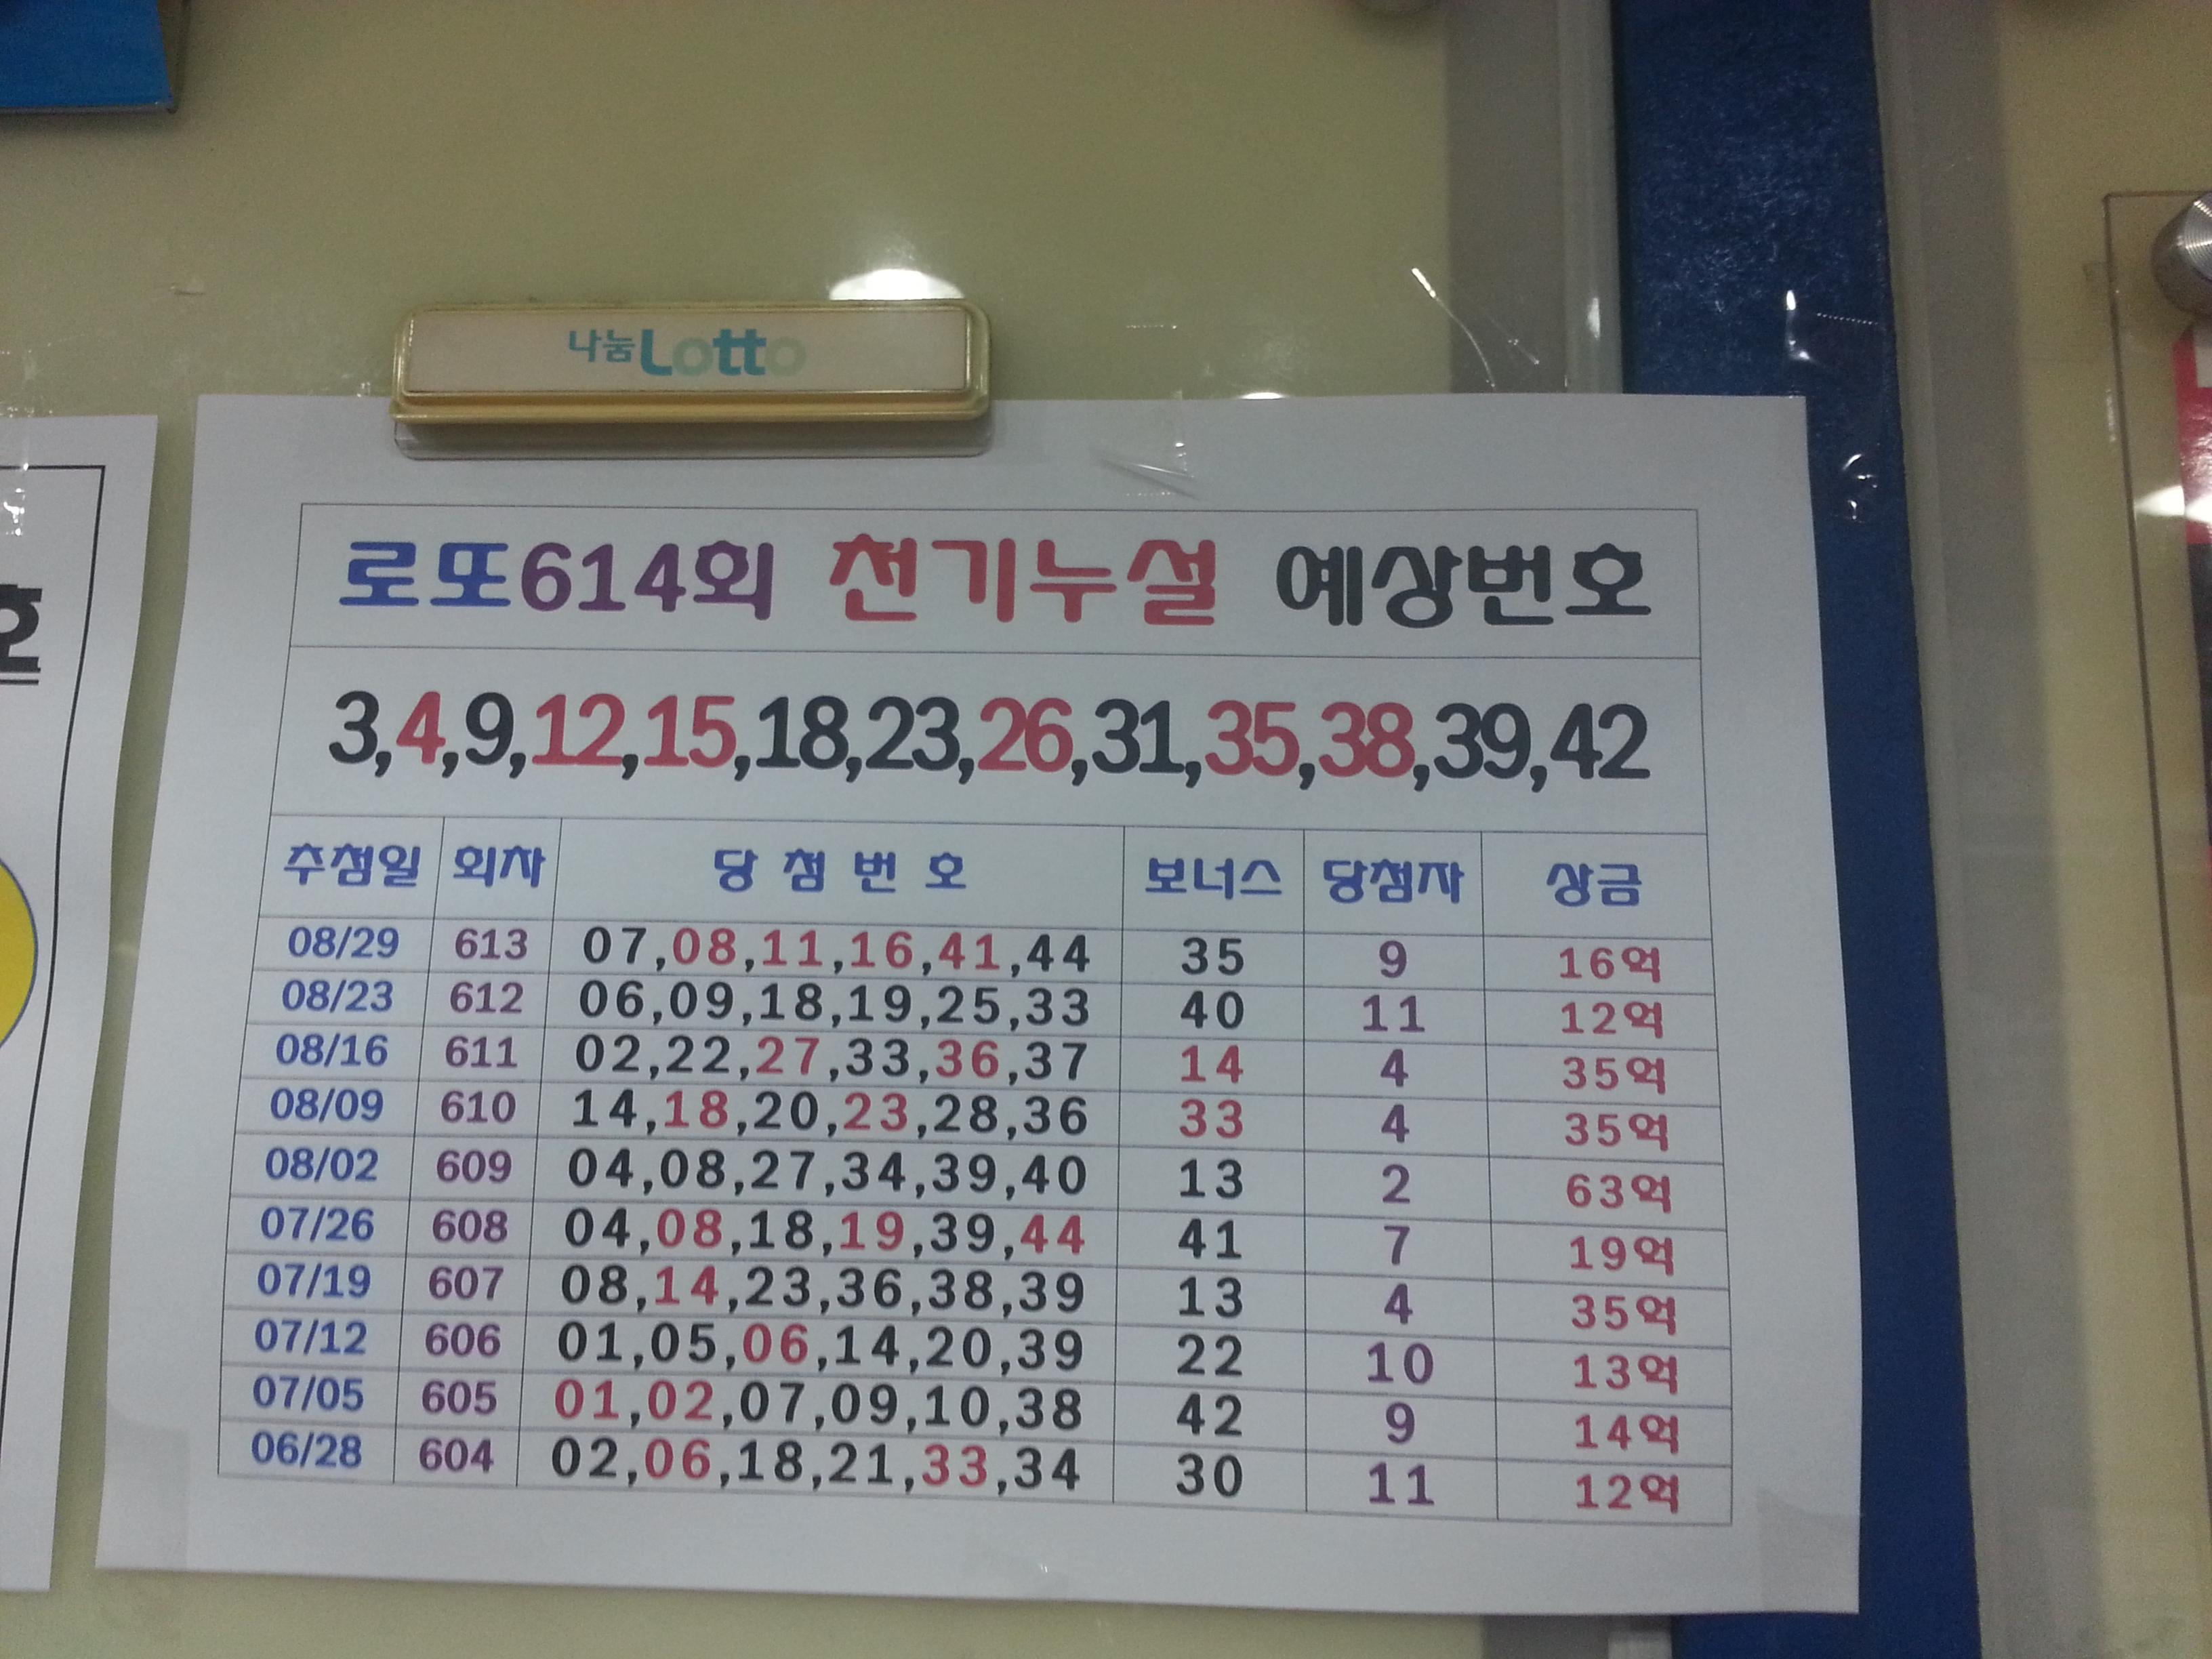 나눔Lotto
호
로또614회 천기누설 예상번호
3,4,9,12,15,18,23,26,31,35,38,39,42
추첨일 회차 당첨번호 보너스 당첨자 상금
08/29 613 07,08,11,16,41,44 35 9 16억
08/23 612 06,09,18,19,25,33 40 11 12억
08/16 611 02,22,27,33,36,37 14 4 35억
08/09 610 14,18,20,23,28,36 33 4 35억
08/02 609 04,08,27,34,39,40 13 2 63억
07/26 608 04,08,18,19,39,44 41 7 19억
07/19 607 08,14,23,36,38,39 13 4 35억
07/12 606 01,05,06,14,20,39 22 10 13억
07/05 605 01,02,07,09,10,38 42 9 14억
06/28 604 02,06,18,21,33,34 30 11 12억